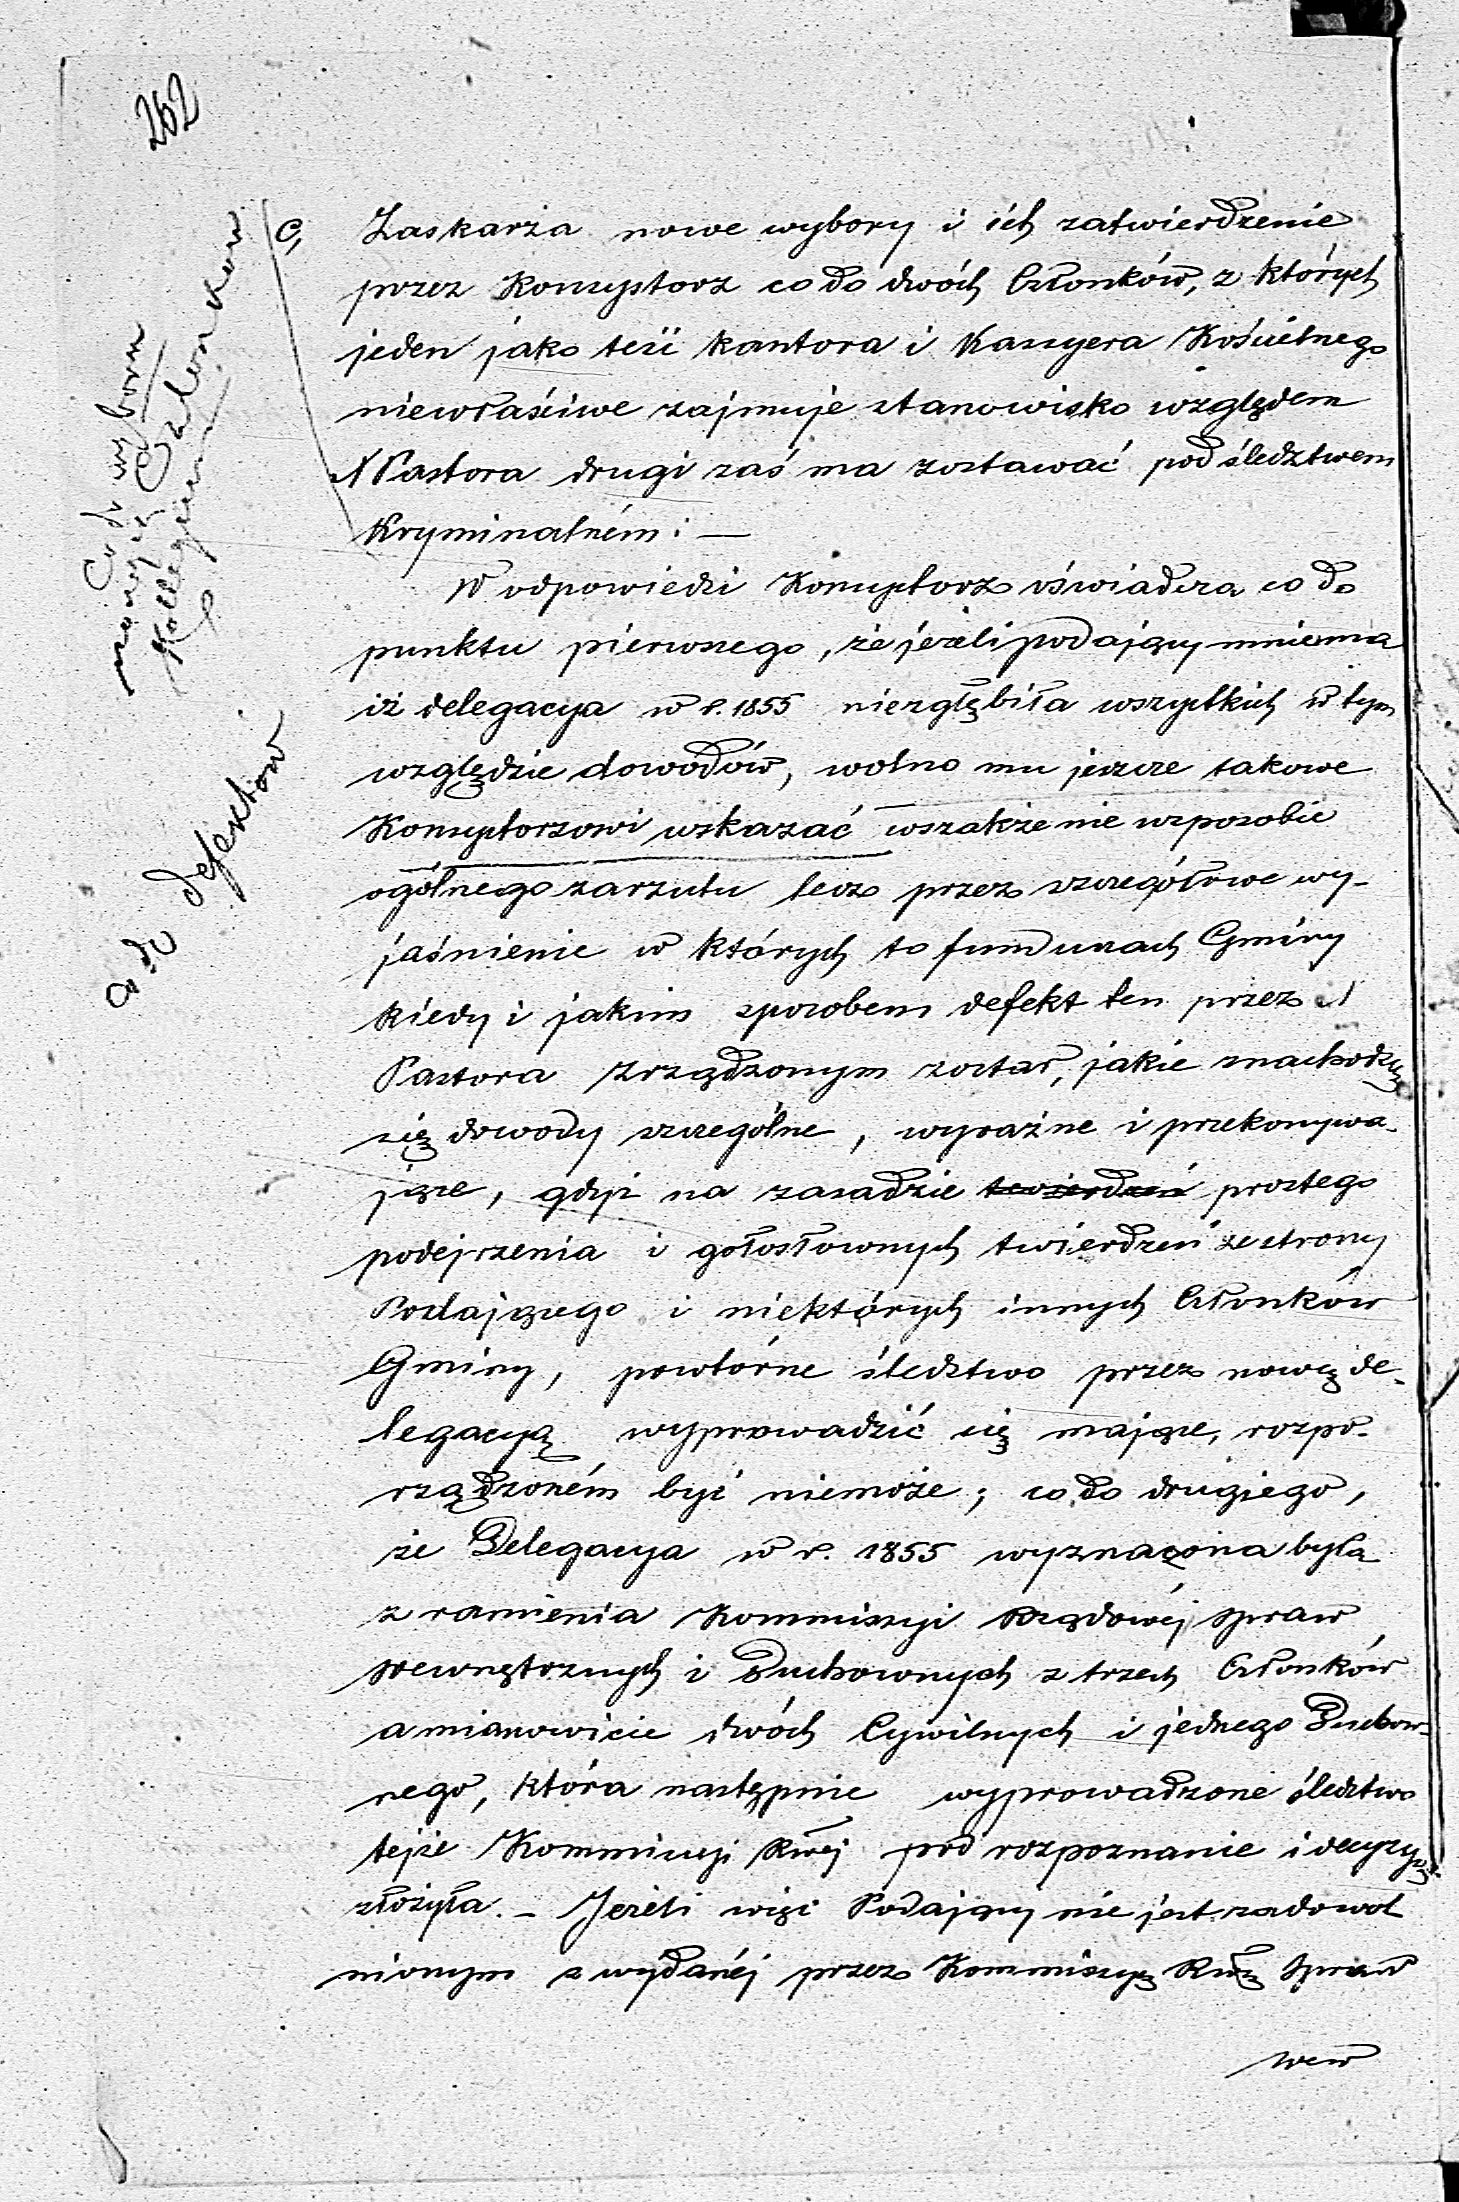 262
c, Zaskarża nowe wybory i ich zatwierdzenie
przez Konsystorz co do dwóch Członków, z których
jeden jako teść kantora i Kassyera Kościelnego
niewłaściwe zajmuje stanowisko względem
Pastora drugi zaś ma zostawać pod śledztwem
Kryminalném: —
W odpowiedzi Konsystorz oświadcza co do
punktu pierwszego, że jeżeli podający mniema
iż delegacya w r. 1855 niezgłębiła wszystkich w tym
względzie dowodów, wolno mu jeszcze takowe
Konsystorzowi wskazać wszakże nie w sposobie
ogólnego zarzutu lecz przez szczegółowe wy-
jaśnienie w których to funduszach Gminy
kiedy i jakim sposobem defekt ten przez
Pastora zrządzonym został, jakie znachodzą
się dowody szczególne, wyraźne i przekonywa-
jące, gdyż na zasadzie twierdzeń prostego
podejrzenia i gołosłownych twierdzeń ze strony
Podającego i niektórych innych Członków
Gminy, powtórne śledztwo przez nową de-
legacyą wyprowadzić się mające, rozpo-
rządzoném być niemoże; co do drugiego,
że Delegacya w r. 1855 wyznaczona była
z ramienia Kommissyi Rządowéj Spraw
Wewnętrznych i Duchownych z trzech Członków
a mianowicie dwóch Cywilnych i jednego Duchow-
nego, która następnie wyprowadzone śledztwo
tejże Kommissyi Rwéj pod rozpoznanie i decyzyą
złożyła. – Jeżeli więc Podający nie jest zadowol
nionym z wydanéj przez Kommissyą Rwą Spraw
wew
Co do wyborów
nowych Członków
Kollegium
Co do defektów